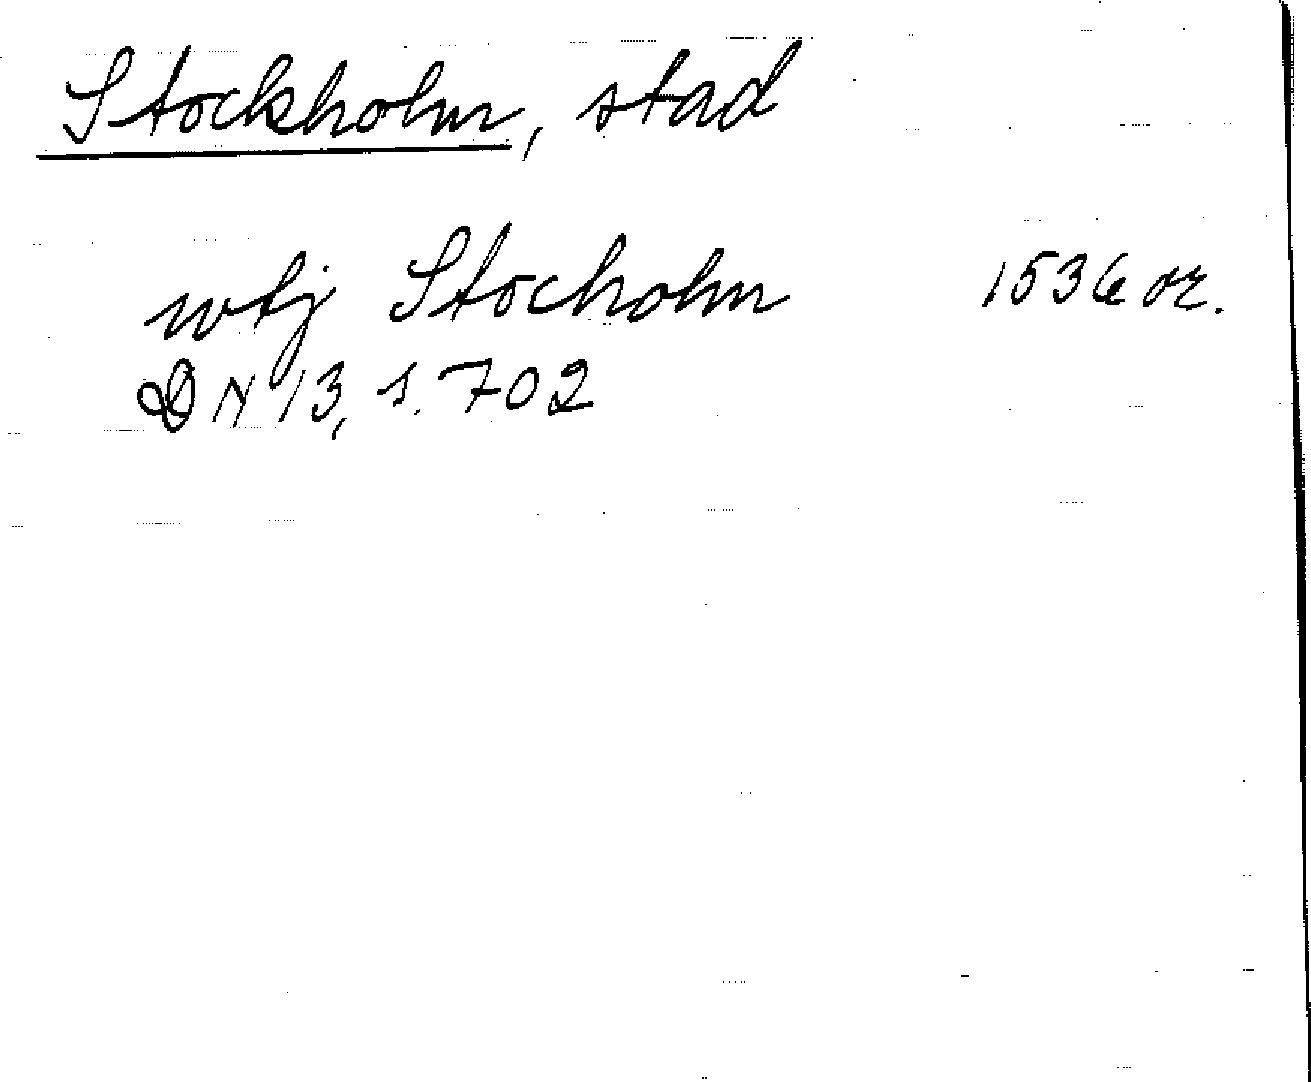 Stockholm, stad
wtj Stocholm 1536 or.
DN 13, s. 702